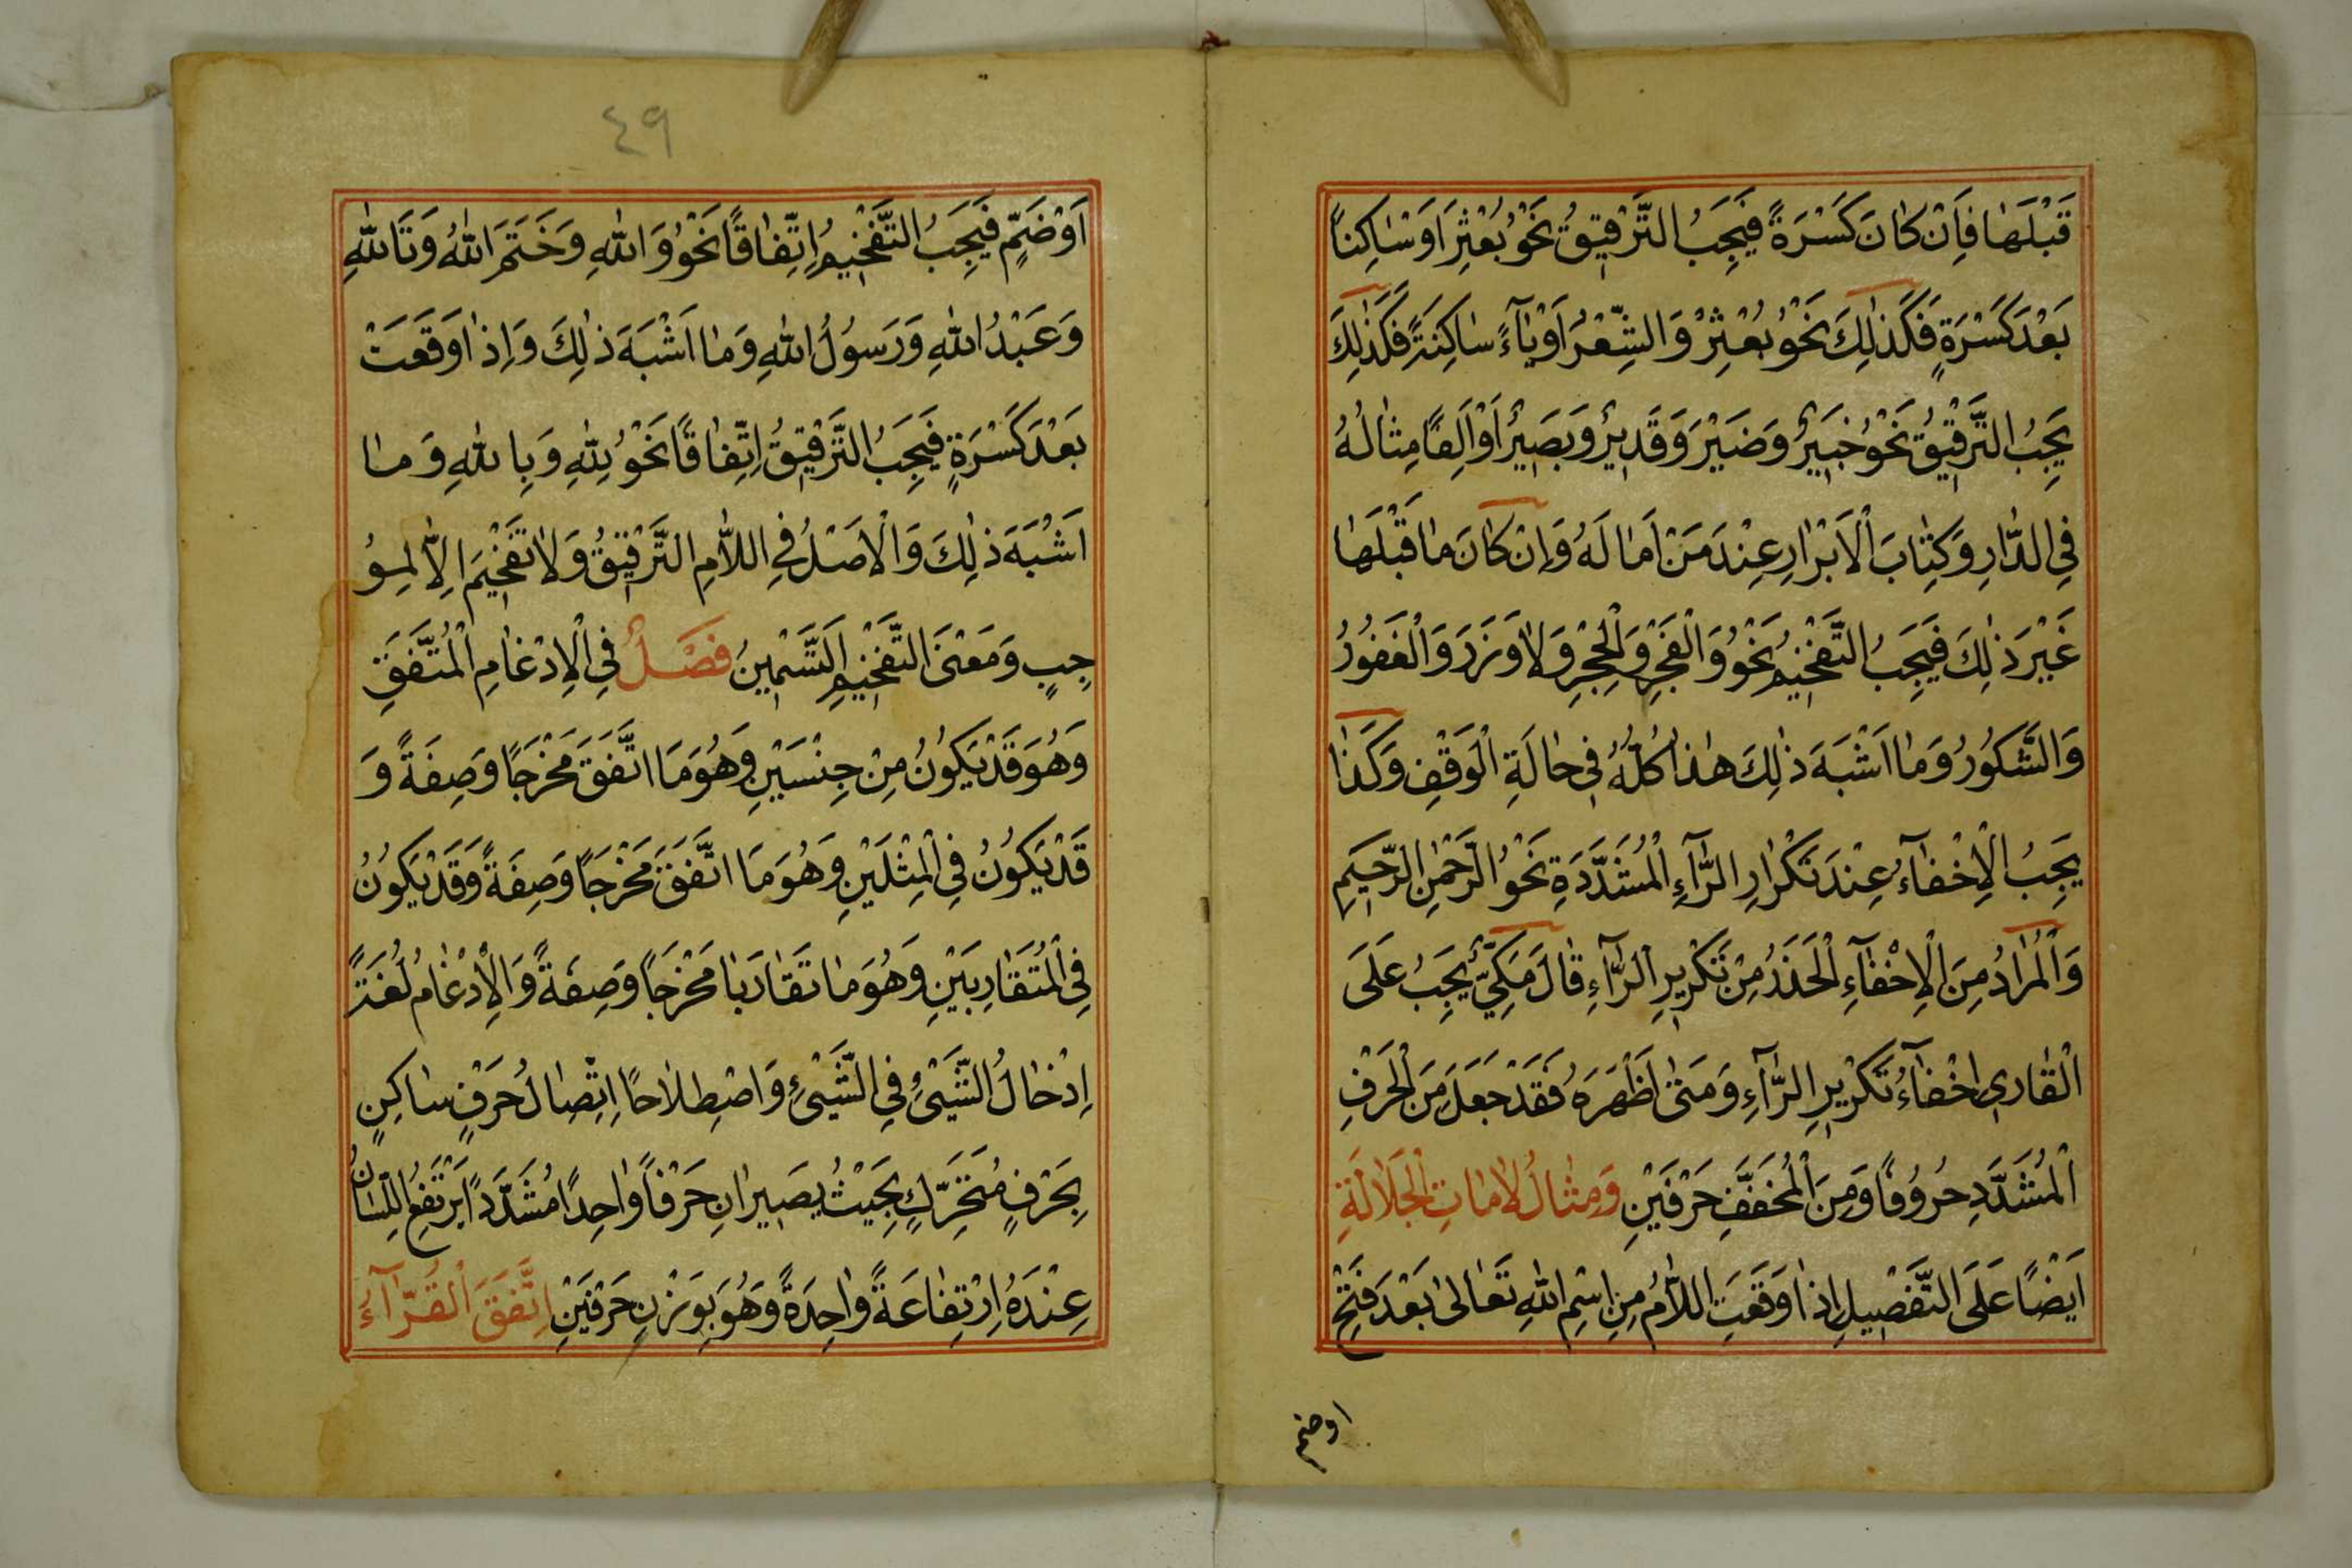 قَبْلَهَا فَاِنْ كَانَ كَسْرَةً فَيَجِبُ التَّرْقِيقُ نَحْوُ بُعْثِرَ اَوْ سَاكِنًا
بَعْدَ كَسْرَةٍ فَكَذٰلِكَ نَحْوُ بُعْثِرْ وَالشِّعْرَ اَوْ يَآءً سَاكِنَةً فَكَذٰلِكَ
يَجِبُ التَّرْقِيقُ نَحْوُ خَبِيرٌ وَضَيْرَ وَقَدِيرٌ وَبَصِيرٌ اَوْ اَلِفًا مِثَالُهُ
فِي الدَّارِ وَكِتَابَ الْاَبْرَارِ عِنْدَ مَنْ اَمَالَهُ وَاِنْ كَانَ مَا قَبْلَهَا
غَيْرَ ذٰلِكَ فَيَجِبُ التَّفْخِيمُ نَحْوُ وَالْفَجْرِ وَالْحِجْرِ وَلَا وَزَرَ وَالْغَفُورُ
وَالشَّكُورُ وَمَا اَشْبَهَ ذٰلِكَ هٰذَا كُلُّهُ فِي حَالَةِ الْوَقْفِ وَكَذَا
يَجِبُ الْاِخْفَآءُ عِنْدَ تَكْرَارِ الرَّآءِ الْمُشَدَّدَةِ نَحْوُ الرَّحْمٰنِ الرَّحِيمِ
وَالْمُرَادُ مِنَ الْاِخْفَآءِ الْحَذَرُ مِنْ تَكْرِيرِ الرَّآءِ قَالَ مَكِّيٌّ يَجِبُ عَلَى
الْقَارِي اِخْفَآءُ تَكْرِيرِ الرَّآءِ وَمَتٰى اَظْهَرَهُ فَقَدْ جَعَلَ مِنَ الْحَرْفِ
الْمُشَدَّدِ حُرُوفًا وَمِنَ الْمُخَفَّفِ حَرْفَيْنِ وَمِثَالُ لَامَاتِ الْجَلَالَةِ
اَيْضًا عَلَى التَّفْصِيلِ اِذَا وَقَعَتِ اللَّامُ مِنِ اسْمِ اللهِ تَعَالٰى بَعْدَ فَتْحٍ
اوضم
٤٩
اَوْ ضَمٍّ فَيَجِبُ التَّفْخِيمُ اِتِّفَاقًا نَحْوُ وَاللهِ وَخَتَمَ اللهُ وَتَاللهِ
وَعَبْدُ اللهِ وَرَسُولُ اللهِ وَمَا اَشْبَهَ ذٰلِكَ وَاِذَا وَقَعَتْ
بَعْدَ كَسْرَةٍ فَيَجِبُ التَّرْقِيقُ اِتِّفَاقًا نَحْوُ لِلّٰهِ وَبِاللهِ وَمَا
اَشْبَهَ ذٰلِكَ وَالْاَصْلُ فِي اللَّامِ التَّرْقِيقُ وَلَا تَفْخِيمَ اِلَّا لِمُو
جِبٍ وَمَعْنَى التَّفْخِيمِ التَّسْمِينُ فَصْلٌ فِي الْاِدْغَامِ الْمُتَّفَقِ
وَهُوَ قَدْ يَكُونُ مِنْ جِنْسَيْنِ وَهُوَ مَا اتَّفَقَ مَخْرَجًا وَصِفَةً وَ
قَدْ يَكُونُ فِي الْمِثْلَيْنِ وَهُوَ مَا اتَّفَقَ مَخْرَجًا وَصِفَةً وَقَدْ يَكُونُ
فِي الْمُتَقَارِبَيْنِ وَهُوَ مَا تَقَارَبَا مَخْرَجًا وَصِفَةً وَالْاِدْغَامُ لُغَةً
اِدْخَالُ الشَّيْئِ فِي الشَّيْئِ وَاصْطِلَاحًا اِتِّصَالُ حَرْفٍ سَاكِنٍ
بِحَرْفٍ مُتَحَرِّكٍ بِحَيْثُ يَصِيرَانِ حَرْفًا وَاحِدًا مُشَدَّدًا يَرْتَفِعُ اللِّسَانُ
عِنْدَهُ اِرْتِفَاعَةً وَاحِدَةً وَهُوَ بِوَزْنِ حَرْفَيْنِ اِتَّفَقَ الْقُرَّآءُ